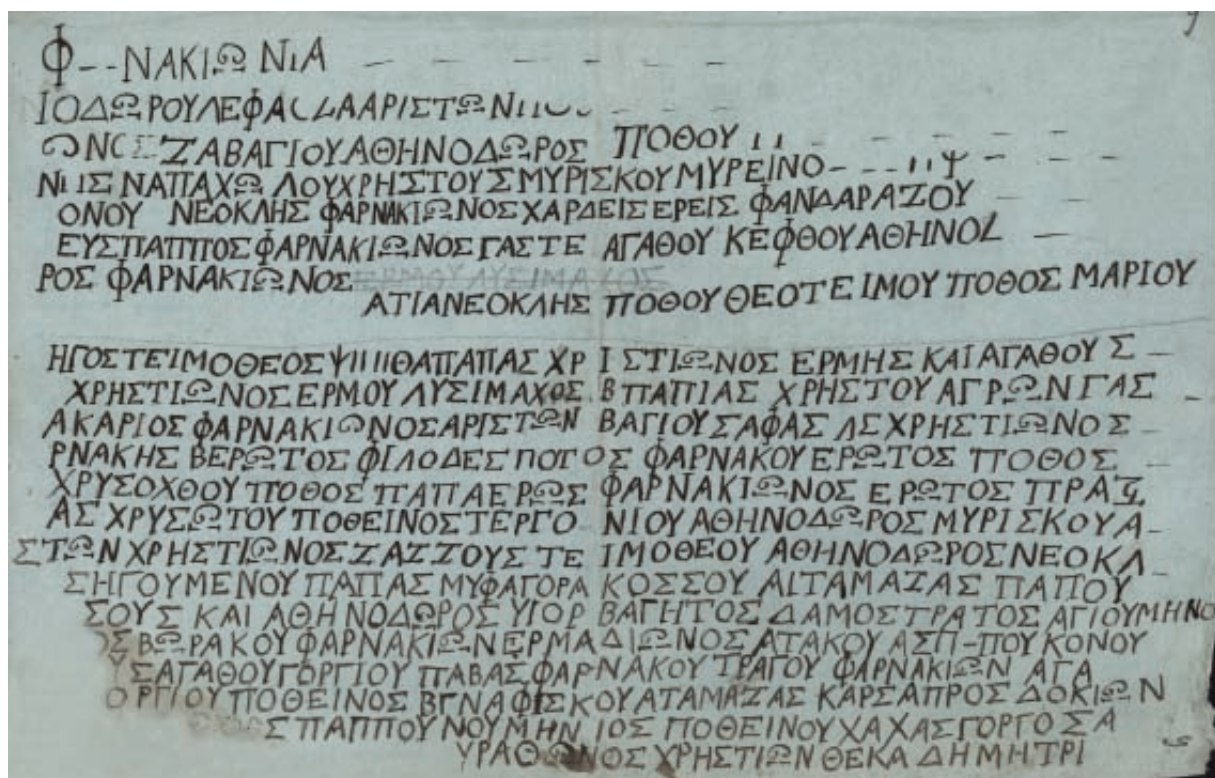 Φ--ΝΑΚΙΩΝΙΑ
ΙΟΔΩΡΟΥΛΕΦΑ ΑΑΡΙΣΤΩΝ
ΖΑΒΑΓΙΟΥΑΘΗΝΟΔΩΡΟΣ ΠΟΘΟΥ
ΝΑΠΑΧΩ ΛΟΥΧΡΗΣΤΟΥΣΜΥΡΙΣΚΟΥΜΥΡΕΙΝΟ
ΟΝΟΥ ΝΕΟΚΛΗΣ ΦΑΡΝΑΚΙΩΝΟΣΧΑΡΔΕΙΣΕΡΕΙΣ ΦΑΝΔΑΡΑΖΟΥ
ΕΥΣΠΑΠΠΟΣΦΑΡΝΑΚΙΩΝΟΣΓΑΣΤΕ ΑΓΑΘΟΥ ΚΕΦΘΟΥΑΘΗΝΟΔ
ΡΟΣ ΦΑΡΝΑΚΙΩΝΟΣ
ΑΤΙΑΝΕΟΚΛΗΣ ΠΟΘΟΥΘΕΟΤΕΙΜΟΥ ΠΟΘΟΣ ΜΑΡΙΟΥ
ΗΓΟΣΤΕΙΜΟΘΕΟΣΨΙΙΙΙΘΑΠΑΠΑΣ ΧΡΙΣΤΙΩΝΟΣ ΕΡΜΗΣ ΚΑΙΑΓΑΘΟΥΣ
ΧΡΗΣΤΙΩΝΟΣΕΡΜΟΥ ΛΥΣΙΜΑΧΟΣ Β ΠΑΠΙΑΣ ΧΡΗΣΤΟΥ ΑΓΡΩΝ ΓΑΣ
ΑΚΑΡΙΟΣ ΦΑΡΝΑΚΙΩΝΟΣΑΡΙΣΤΩΝ ΒΑΓΙΟΥΣΑΦΑΣ ΛΣΧΡΗΣΤΙΩΝΟΣ
ΡΝΑΚΗΣ ΒΕΡΩΤΟΣ ΦΙΛΟΔΕΣΠΟΤΟΣ ΦΑΡΝΑΚΟΥΕΡΩΤΟΣ ΠΟΘΟΣ
ΧΡΥΣΟΧΘΟΥ ΠΟΘΟΣ ΠΑΠΑΕΡΩΣ ΦΑΡΝΑΚΙΩΝΟΣ ΕΡΩΤΟΣ ΠΡΑ
ΑΣ ΧΡΥΣΩΤΟΥ ΠΟΘΕΙΝΟΣΤΕΡΓΟ ΝΙΟΥΑΘΗΝΟΔΩΡΟΣΜΥΡΙΣΚΟΥΑ
ΣΤΩΝΧΡΗΣΤΙΩΝΟΣΖΑΖΖΟΥΣ ΤΕΙΜΟΘΕΟΥ ΑΘΗΝΟΔΩΡΟΣΝΕΟΚΛ
ΣΗΓΟΥΜΕΝΟΥ ΠΑΠΑΣ ΜΥΦΑΓΟΡΑ ΚΟΣΣΟΥ ΑΙΤΑΜΑΖΑΣ ΠΑΠΟΥ
ΣΟΥΣ ΚΑΙ ΑΘΗΝΟΔΩΡΟΣ ΥΓΟΡ ΒΑΓΗΤΟΣ ΔΑΜΟΣΤΡΑΤΟΣ ΑΓΙΟΥΜΗΝΟ
ΟΣΒΩΡΑΚΟΥΦΑΡΝΑΚΙΩΝΕΡΜΑΔΙΩΝΟΣΑΤΑΚΟΥ ΑΣΠ-ΠΟΥ ΚΟΝΟΥ
ΥΣΑΓΑΘΟΥΓΟΡΓΙΟΥ ΠΑΒΑΣΦΑΡΝΑΚΟΥ ΤΡΑΓΟΥ ΦΑΡΝΑΚΙΩΝ ΑΓΑ
ΟΡΓΙΟΥΠΟΘΕΙΝΟΣ ΒΓΝΑΦΙΣΚΟΥΑΤΑΜΑΖΑΣ ΚΑΡΣΑΠΡΟΣ ΔΟΚΙΩΝ
Σ ΠΑΠΠΟΥ ΝΟΥΜΗΝΙΟΣ ΠΟΘΕΙΝΟΥΧΑΧΑΣΓΟΡΓΟΣΑ
ΥΡΑΘΩΝΟΣΧΡΗΣΤΙΩΝΘΕΚΑ ΔΗΜΗΤΡΙ